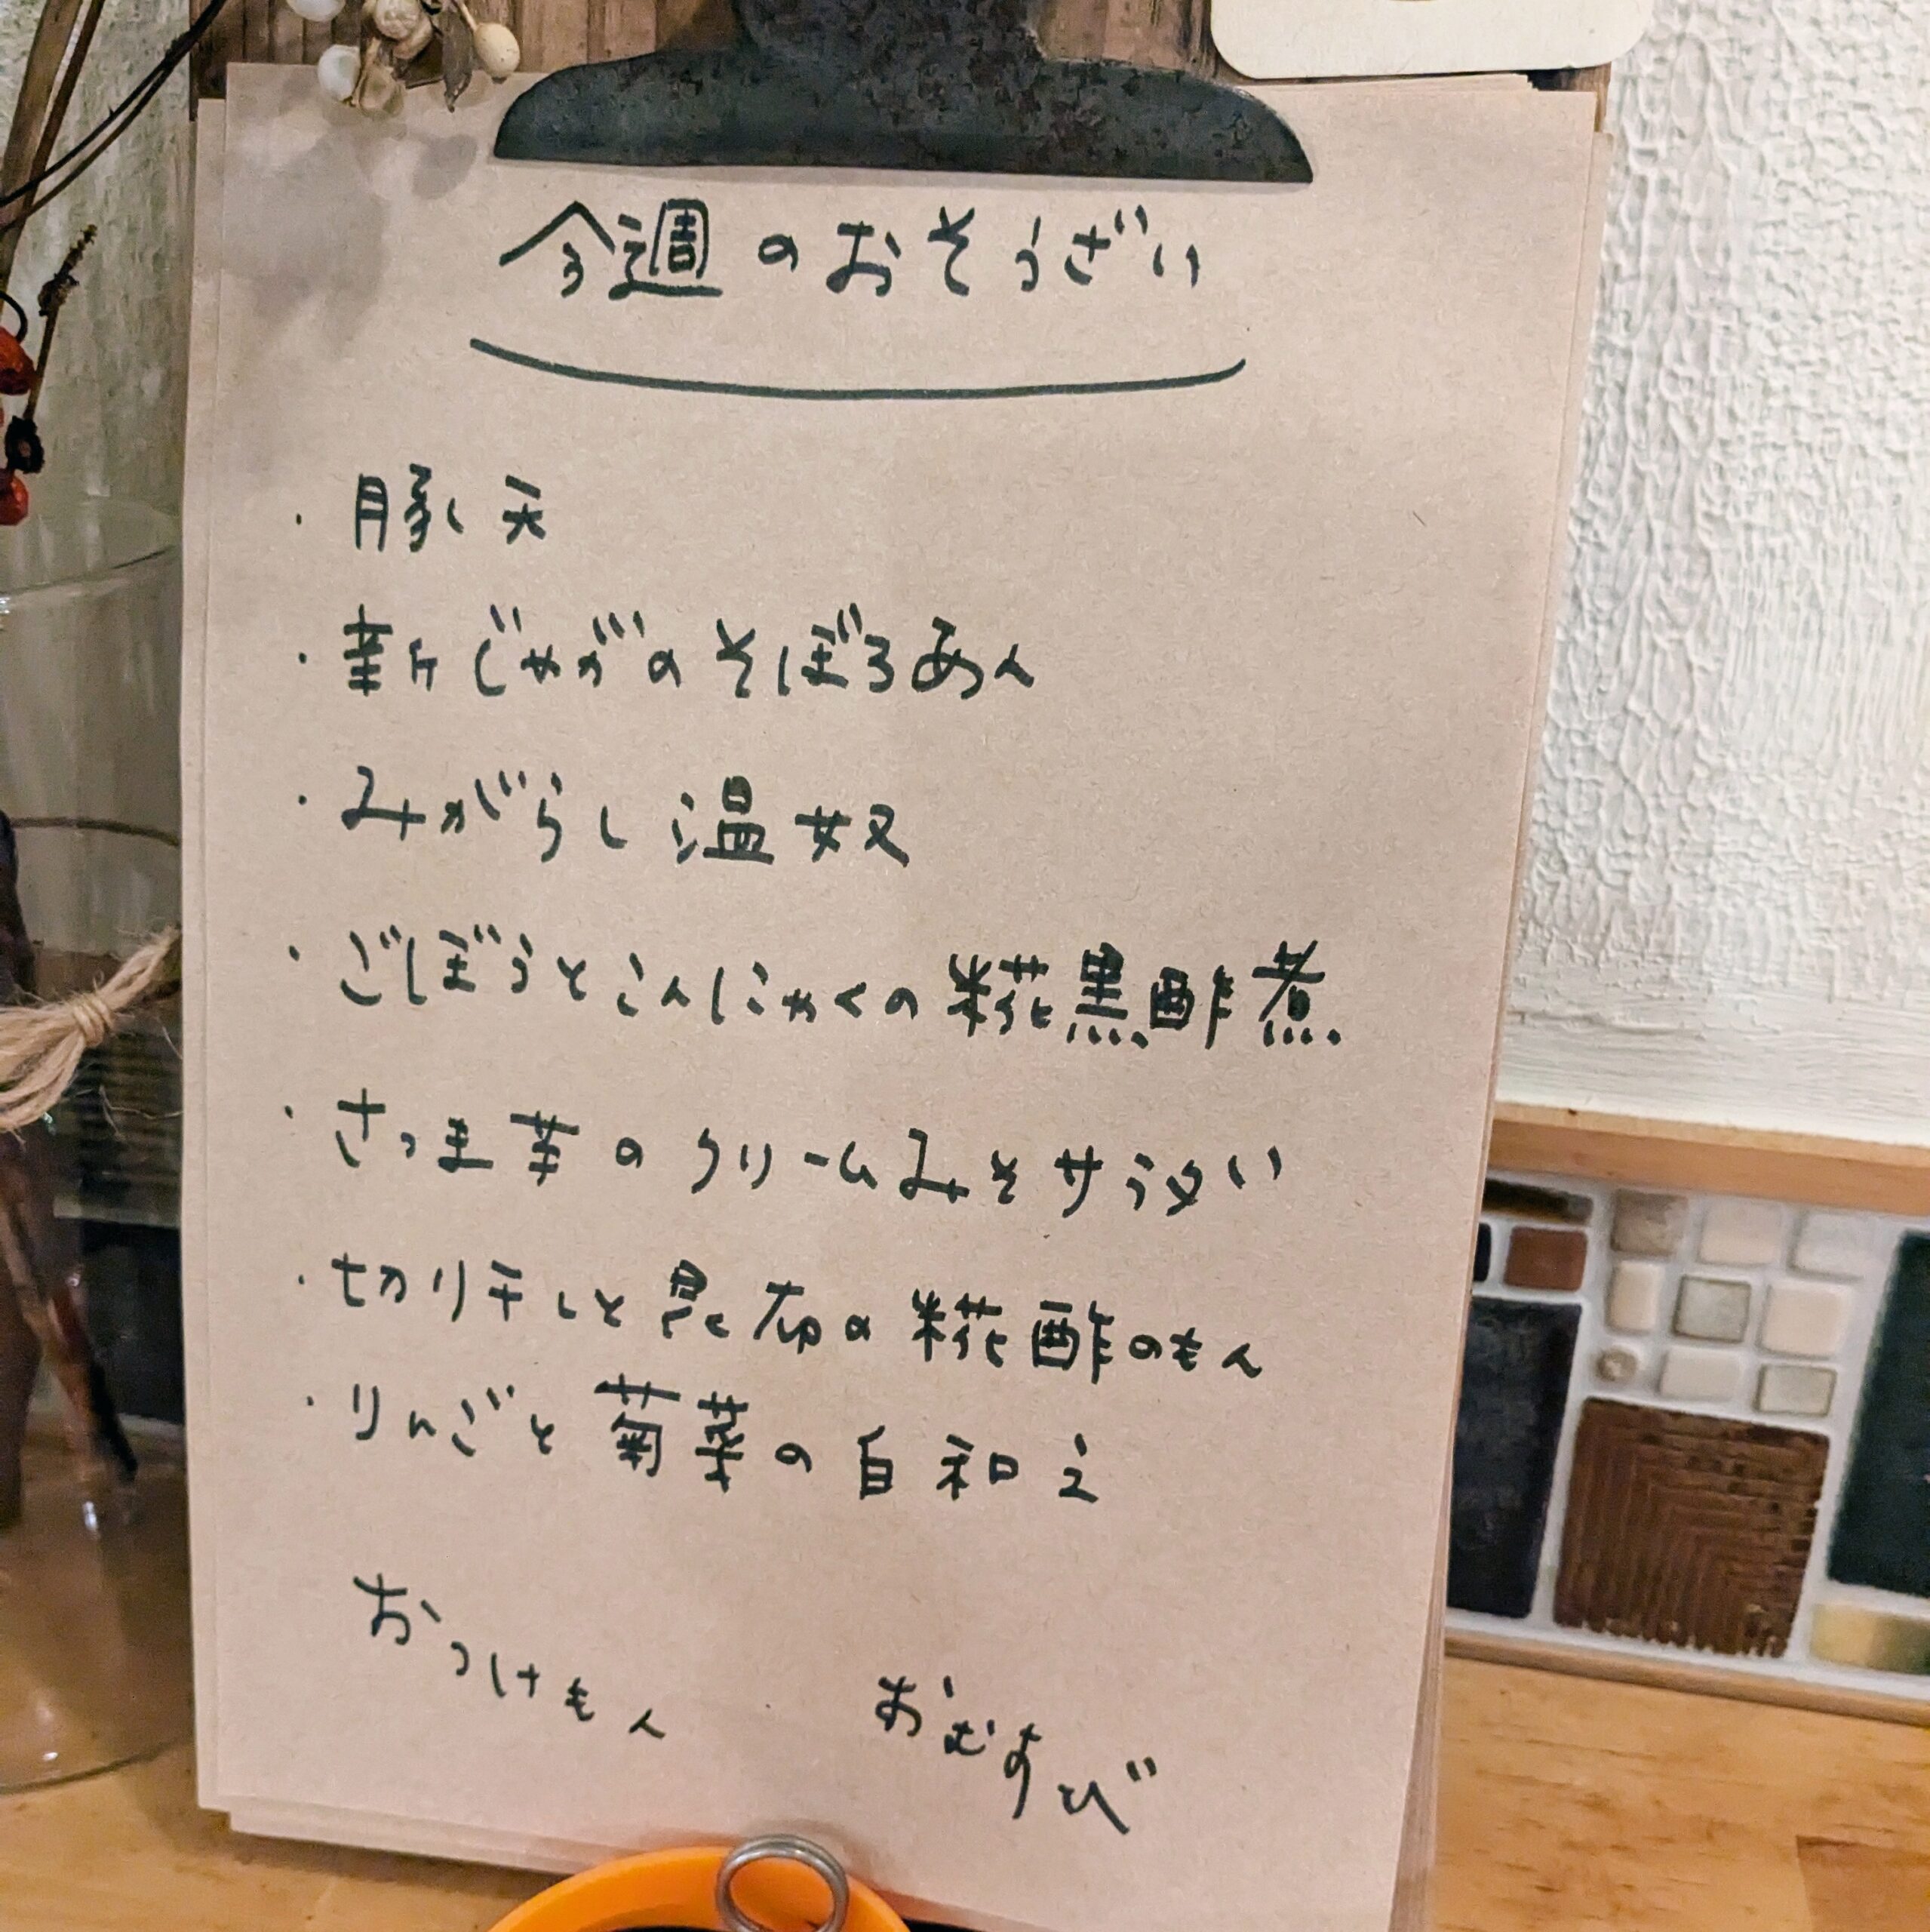 今週のおそうざい
・豚天
・新じゃがのそぼろあん
・みがらし温奴
・ごぼうとこんにゃくの糀黒酢煮
・さつま芋のクリームみそサラダ
・切り干しと昆布の糀酢のもん
・りんごと菊菜の白和え
おつけもん
おむすび